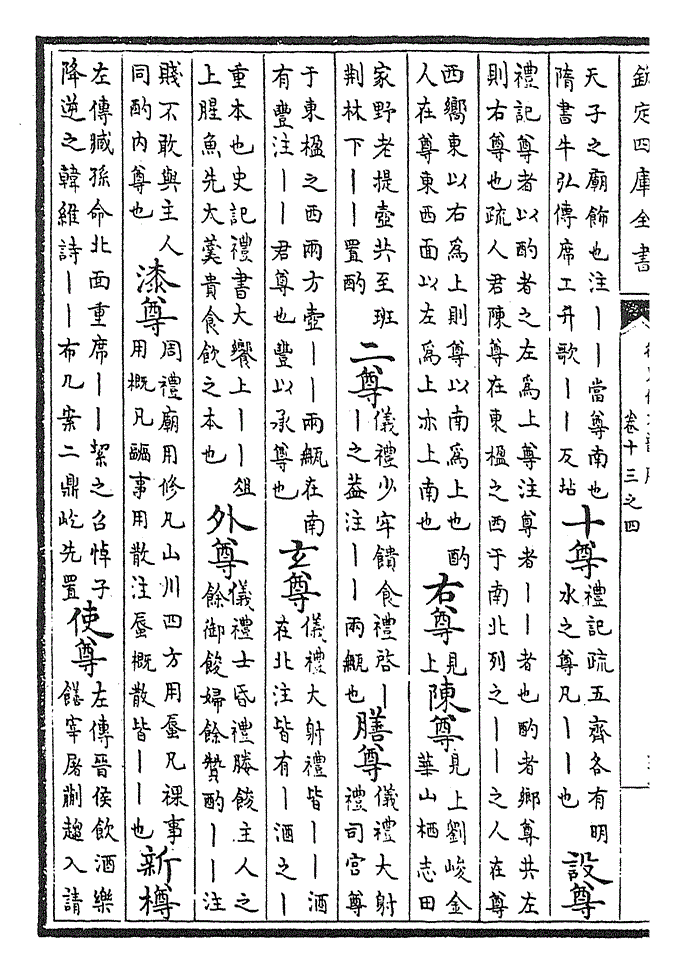 欽定四庫全書
卷十三之四
天子之廟飾也注丨丨當尊南也
隋書牛弘傳席工升歌丨丨反坫
十尊
禮記疏五齊各有明
水之尊凡丨丨也
設尊
禮記尊者以酌者之左為上尊注尊者丨丨者也酌者鄉尊共左
則右尊也疏人君陳尊在東楹之西于南北列之丨丨之人在尊
西嚮東以右為上則尊以南為上也酌
人在尊東西面以左為上亦上南也
右尊
見
上
陳尊
見上劉峻金
華山栖志田
家野老提壺共至班
荆林下丨丨置酌
二尊
儀禮少牢饋食禮啓丨
丨之葢注丨丨兩甒也
膳尊
儀禮大射
禮司宮尊
于東楹之西兩方壺丨丨兩甒在南
有豐注丨丨君尊也豐以承尊也
玄尊
儀禮大射禮皆丨丨酒
在北注皆有丨酒之丨
重本也史記禮書大饗上丨丨俎
上腥魚先大羹貴食飲之本也
外尊
儀禮士昏禮媵餕主人之
餘御餕婦餘贊酌丨丨注
賤不敢與主人
同酌内尊也
漆尊
周禮廟用修凡山川四方用蜃凡祼事
用概凡疈事用散注蜃概散皆丨丨也
新樽
左傳臧孫命北面重席丨丨絜之召悼子
降逆之韓維詩丨丨布几案二鼎屹先置
使尊
左傳晉侯飲酒樂
饍宰屠蒯趨入請